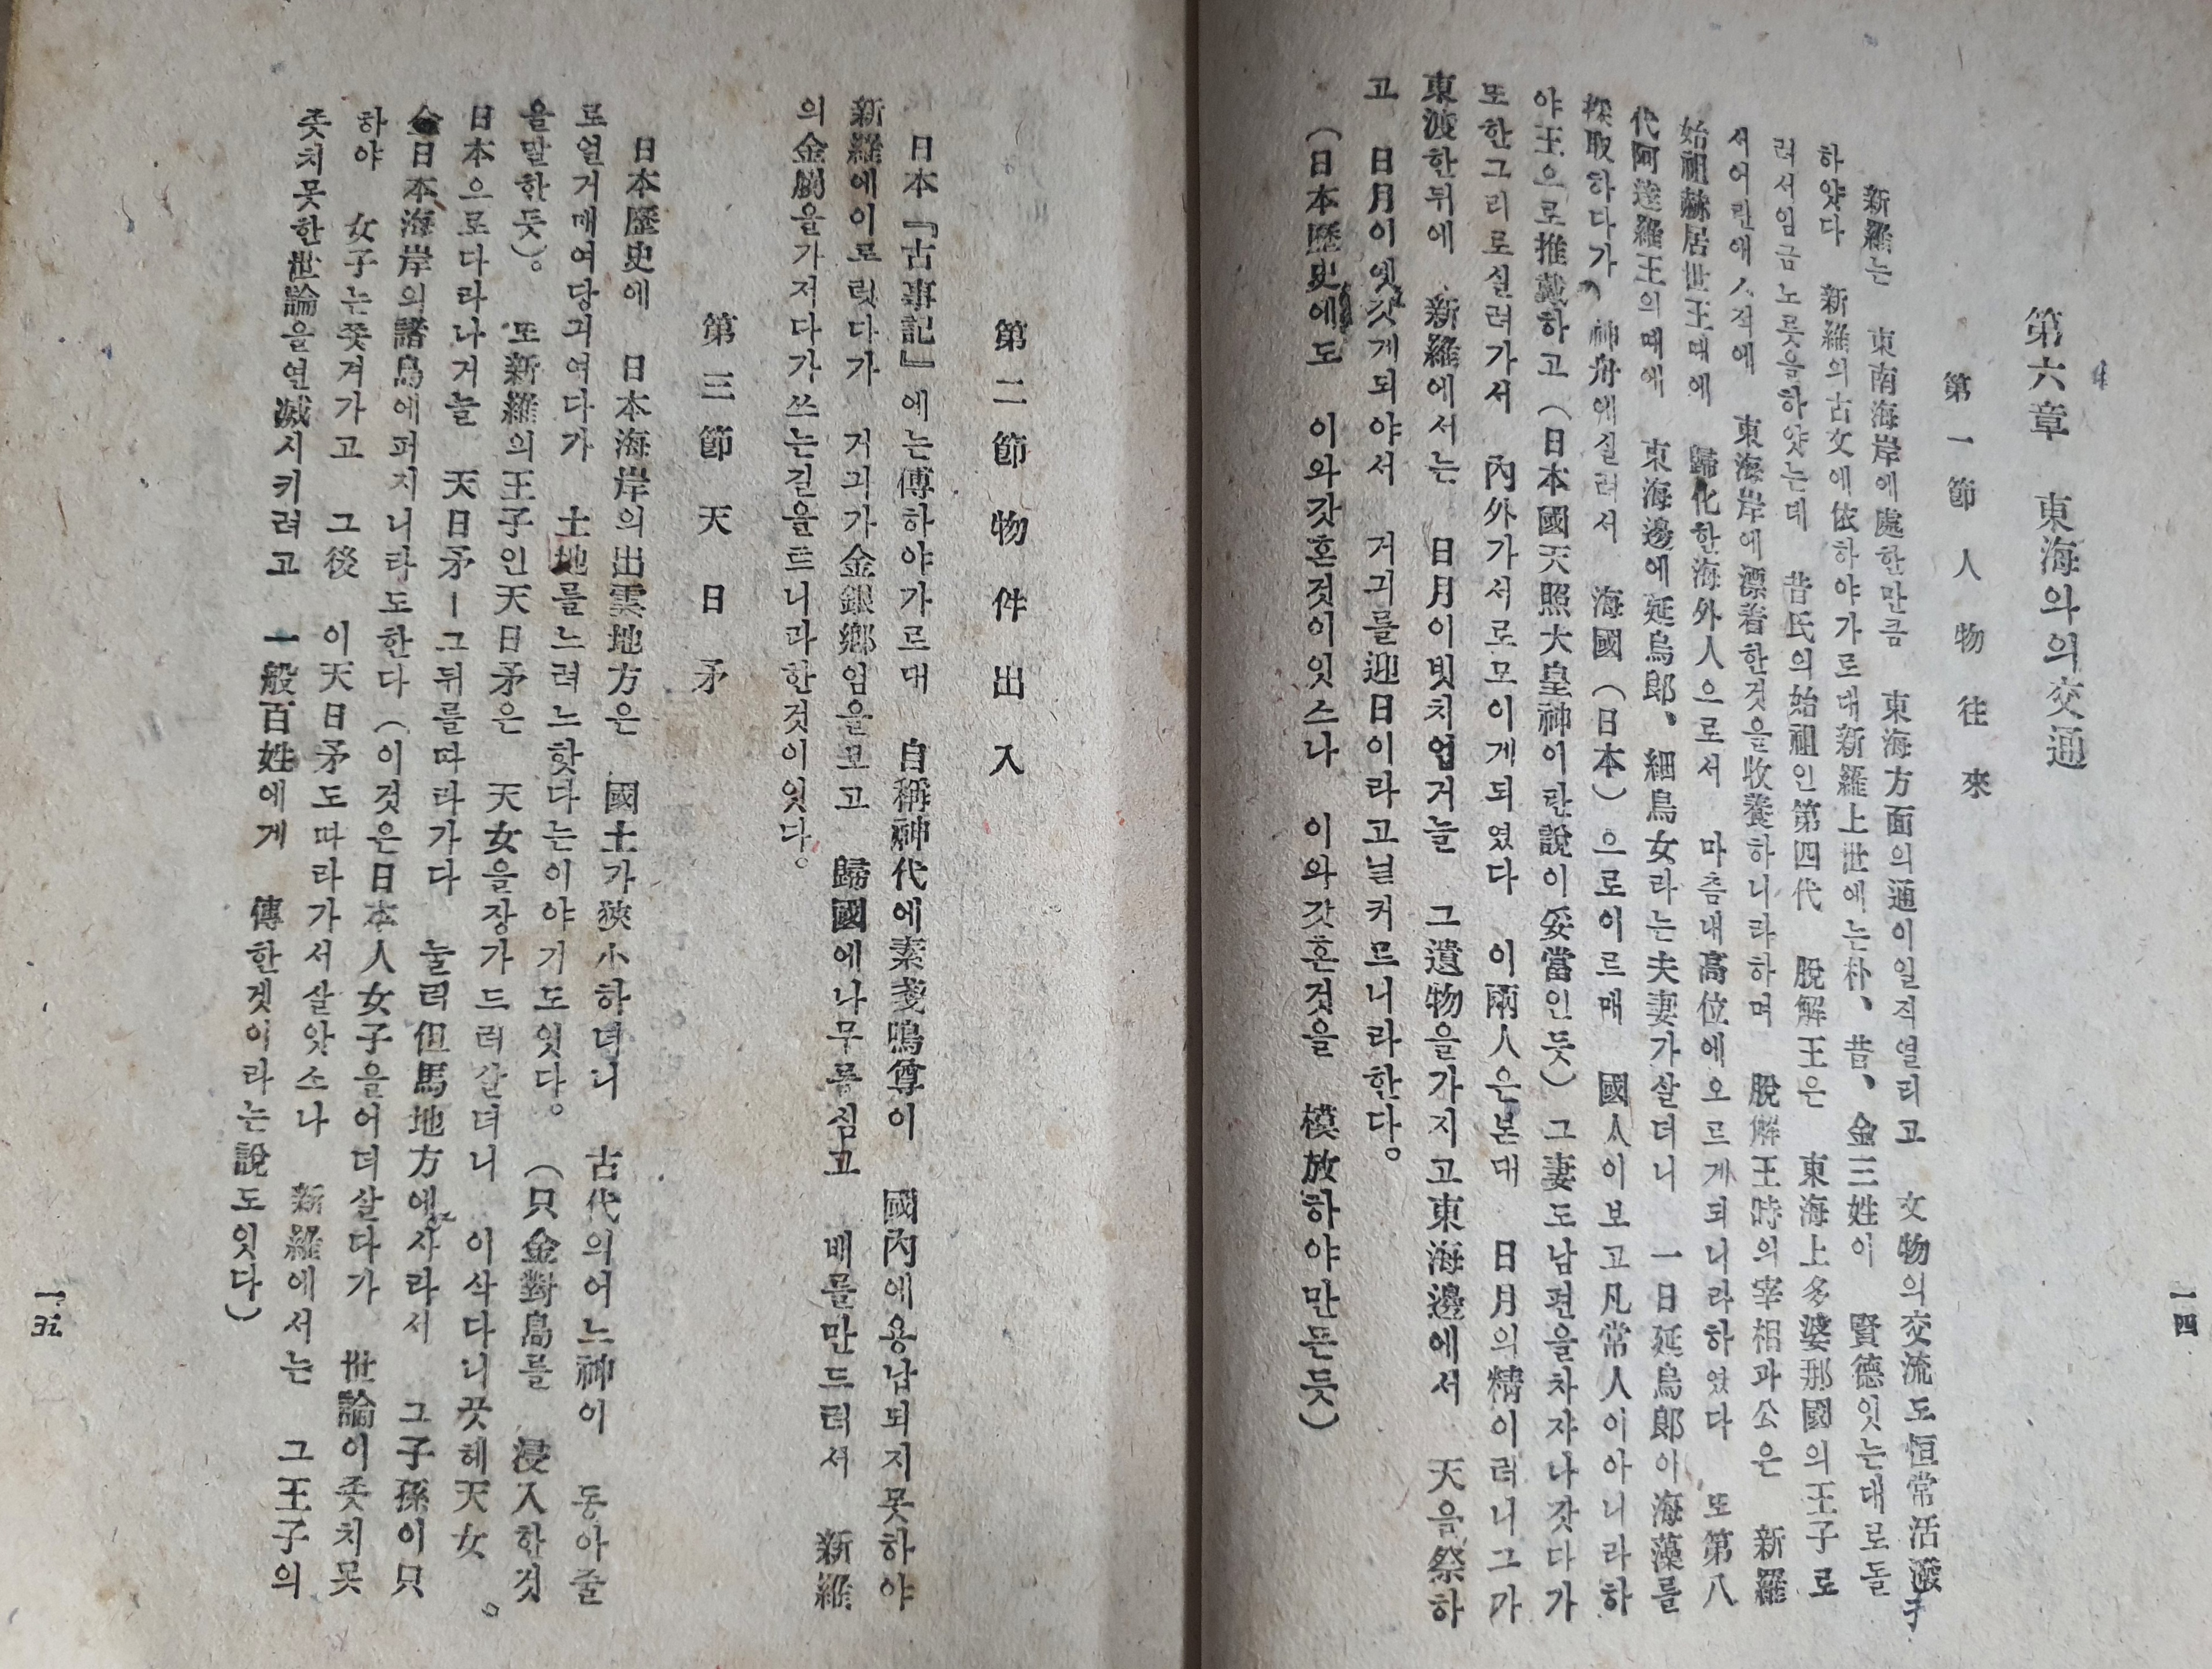 第六章 東海와의交通
第一節 人物往來
新羅는 東南海岸에處한만큼 東海方面의通이일즉열리고 文物의交流도恒常活潑
하얏다 新羅의古女에依하야가르대新羅上世에는朴、昔、金三姓이 賢德잇는대로돌
려서임금노릇을하얏는데 昔氏의始祖인第四代 脫解王은 東海上多婆那國의王子로
서어란애人적에 東海岸에漂着한것을收養하니라하며 脫解王時의宰相과公은 新羅
始祖赫居世王때에 歸化한海外人으로서 마츰내高位에오르게되니라하였다 또第八
代阿達羅王의때에 東海邊에延烏郞、細烏女라는夫妻가살더니 一日延烏郞이海藻를
採取하다가 神舟에실려서 海國(日本)으로이르매 國人이보고凡常人이아니라하
야王으로推戴하고(日本國天照大皇神이란說이妥當인듯)그妻도남편을차자나갓다가
또한그리로실려가서 內外가서로모이게되였다 이兩人은본대 日月의精이러니그가
東渡한뒤에 新羅에서는 日月이빗치업거늘 그遺物을가지고東海邊에서 天을祭하
고 日月이옛갓게되야서 거긔를迎日이라고닐커르니라한다。
(日本歷史에도 이와갓흔것이잇스나 이와갓흔것을 模放하야만든듯)
一四
第二節 物件出入
日本『古事記』에는傳하야가르대 自稱神代에素戔鳴尊이 國內에용납되지못하야
新羅에이르럿다가 거긔가金銀鄕임을보고 歸國에나무를심고 배를만드러서 新羅
의金屬을가저다가쓰는길을트니라한것이잇다。
第三節 天日矛
日本歷史에 日本海岸의出雲地方은 國土가狹小하더니 古代의어느神이 동아줄
로얼거매여당긔여다가 土地를느려느핫다는이야기도잇다。(只金對島를 浸入한것
을말한듯)。 또新羅의王子인天日矛은 天女을장가드러살더니 이삭다니끗헤天女
日本으로다라나거늘 天日矛ー그뒤를따라가다 눌러但馬地方에사라서 그子孫이只
金日本海岸의諸島에퍼지니라도한다(이것은日本人女子을어더살다가 世論이좃치못
하야 女子는쫏겨가고 그後 이天日矛도따라가서살앗소나 新羅에서는 그王子의
좃치못한世論을연滅시키려고 一般百姓에게 傳한겟이라는說도잇다)
一五